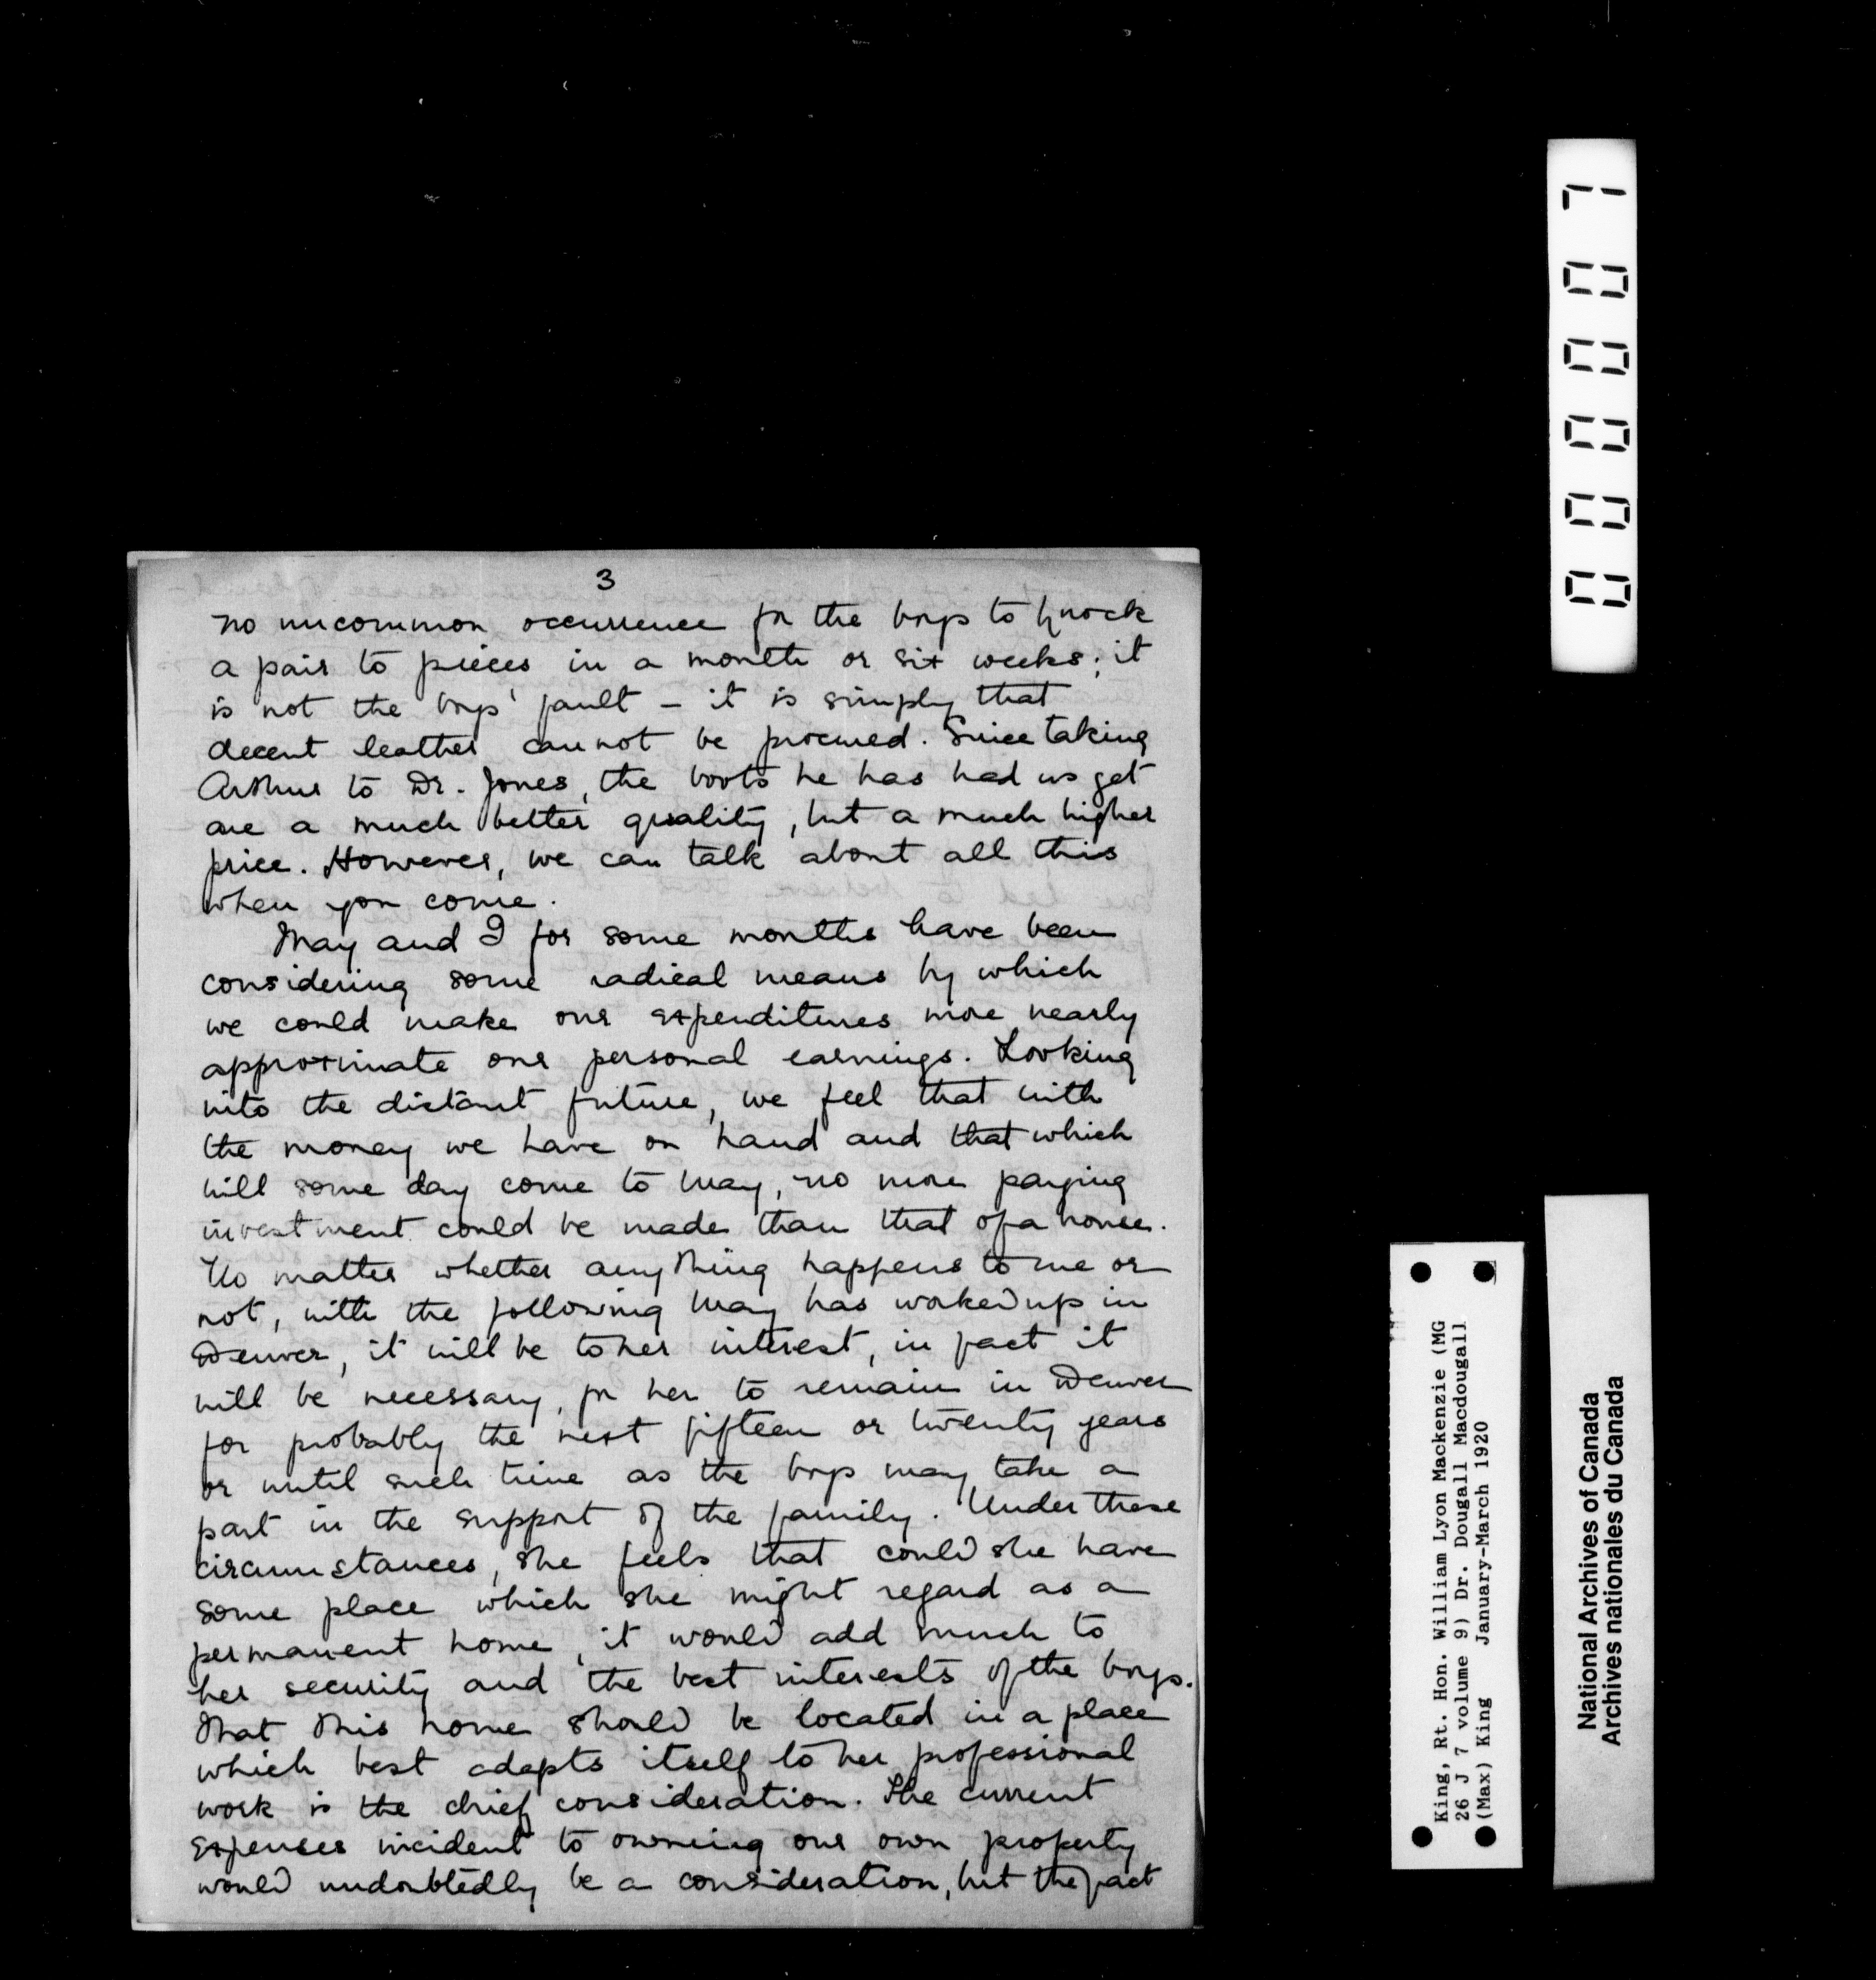 3
no uncommon occurrence for the boys to knock
a pair to pieces in a month or six weeks; it
is not the boys' fault – it is simply that
decent leather cannot be procured. Since taking
Arthur to Dr. Jones, the boots he has had us get
are a much better quality, but a much higher
price. However, we can talk about all this
when you come.
May and I for some months have been
considering some radical means by which
we could make our expenditures more nearly
approximate our personal earnings. Looking
into the distant future, we feel that with
the money we have on hand and that which
will some day come to May, no more paying
investment could be made than that of a house.
No matter whether anything happens to me or
not, with the following May has worked up in
Denver, it will be to her interest, in fact it
will be necessary, for her to remain in Denver
for probably the next fifteen or twenty years
or until such time as the boys may take a
part in the support of the family. Under these
circumstances, she feels that could she have
some place which she might regard as a
permanent home, it would add much to
her security and the best interests of the boys.
That this home should be located in a place
which best adapts itself to her professional
work is the chief consideration. The current
expenses incident to owning our own property
would undoubtedly be a consideration, but the fact
000007
King, Rt. Hon. William Lyon Mackenzie (MG
26 J 7 volume 9) Dr. Dougall Macdougall
(Max) King January-March 1920
National Archives of Canada
Archives nationales du Canada